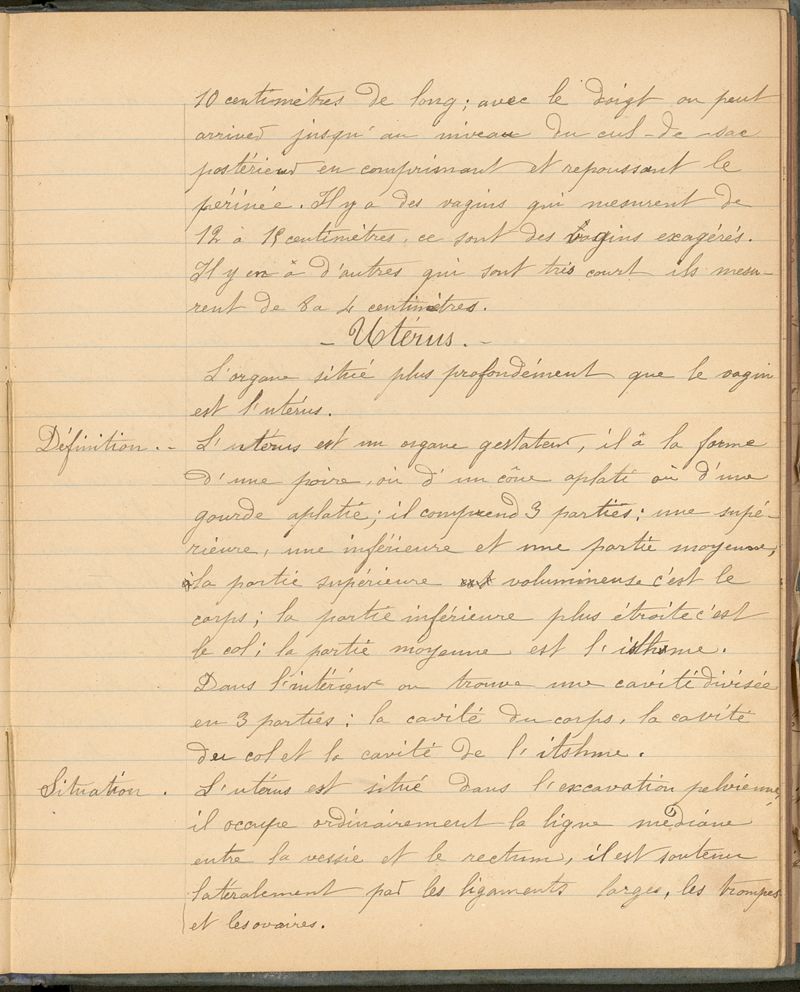 10 centimètres de long; avec le doigt on peut
arriver jusqu'au niveau du cul-de-sac
postérieur en comprimant et repoussant le
périnée. Il y a des vagins qui mesurent de
12 à 15 centimètres, ce sont des vagins exagérés.
Il y en à d'autres qui sont très court ils mesu-
rent de 8 a 4 centimètres.
- Utérus. -
L'organe situé plus profondément que le vagin
est l'utérus.
Définition. - L'utérus est un organe gestateur, il à la forme
d'une poire, où d'un cône aplati où d'une
gourde aplatie; il comprend 3 parties: une supé-
rieure, une inférieure et une partie moyenne,
la partie supérieure volumineuse c'est le
corps; la partie inférieure plus étroite c'est
le col; la partie moyenne est l'isthme.
Dans l'intérieur on trouve une cavité divisée
en 3 parties: la cavité du corps, la cavité
du col et la cavité de l'itshme.
Situation. L'utérus est situé dans l'excavation pelvienne,
il occupe ordinairement la ligne médiane
entre la vessie et le rectum, il est soutenu
latteralement par les ligaments larges, les trompes
et les ovaires.